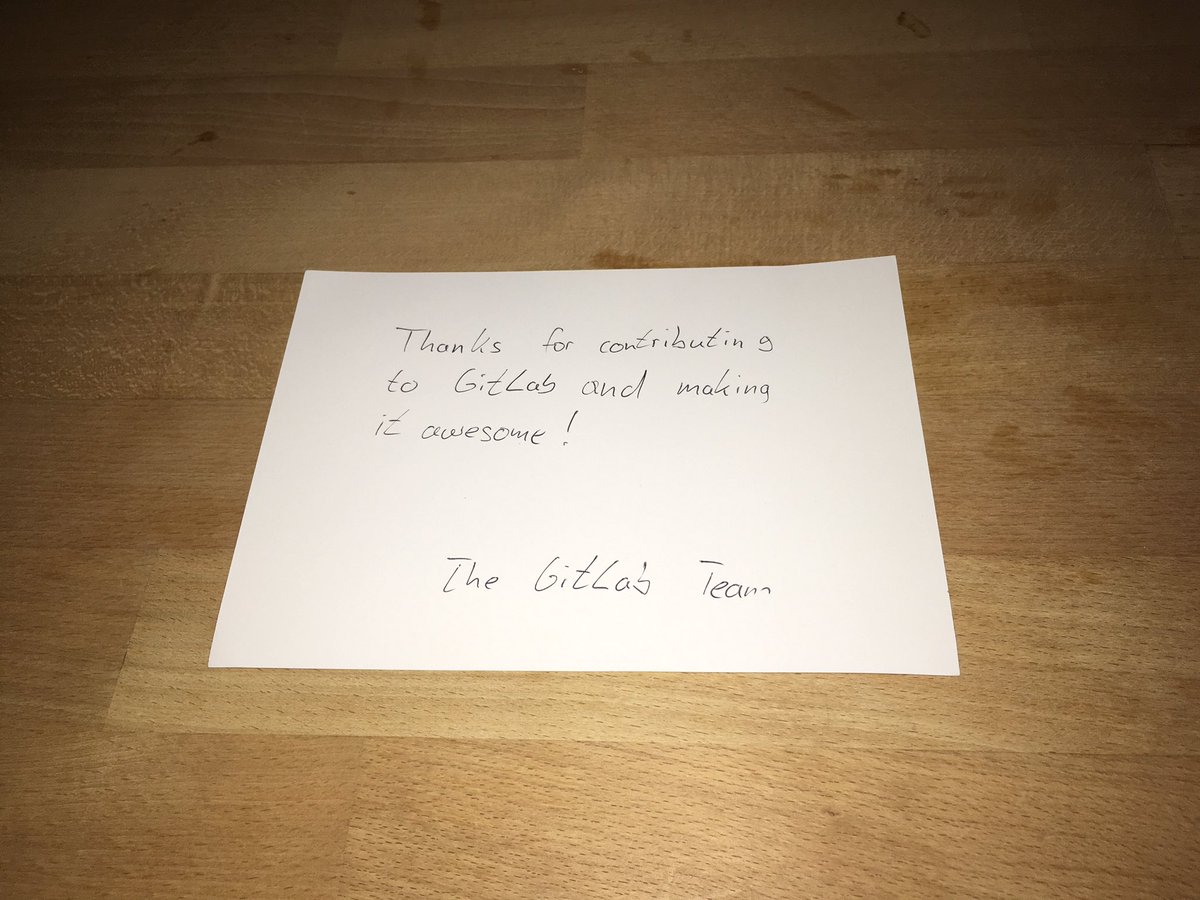 Thanks for contributing
to GitLab and making
it awesome!
The GitLab Team